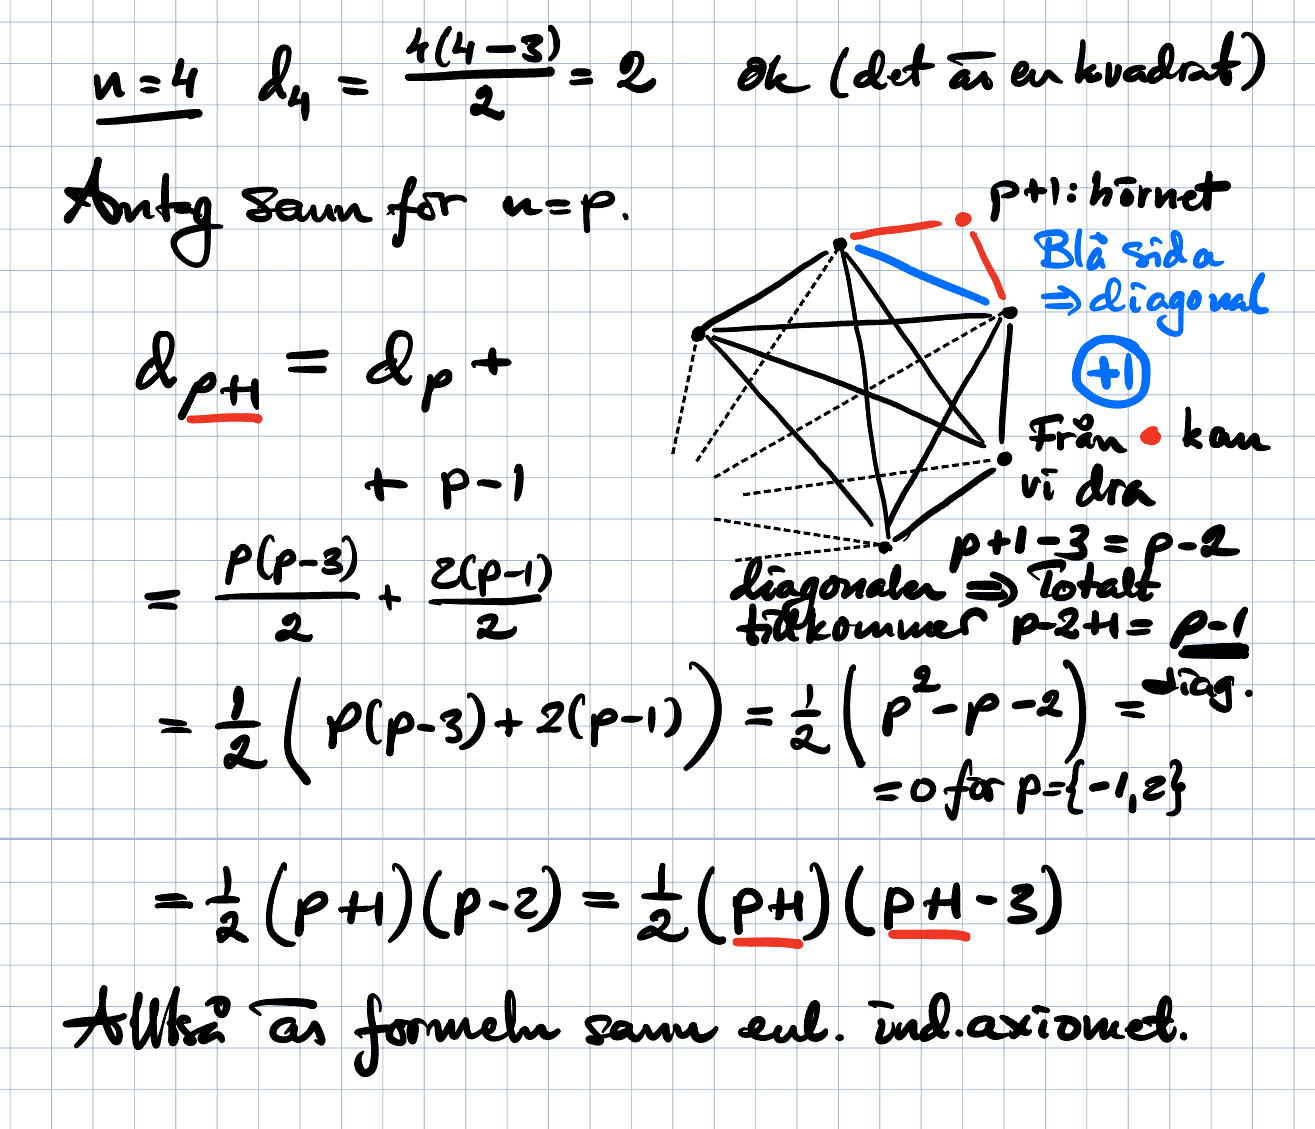 n=4 d₄ = 4(4-3)/2 = 2 ok (det är en kvadrat)
Antag sann för n=p.
p+1:hörnet
Blå sida
⇒ diagonal
+1
d_{p+1} = d_p +
+ p-1
Från • kan
vi dra
p+1-3 = p-2
diagonaler ⇒ Totalt
tillkommer p-2+1 = p-1
diag.
= p(p-3)/2 + 2(p-1)/2
= 1/2 (p(p-3)+2(p-1)) = 1/2 (p²-p-2) =
=0 för p={-1,2}
= 1/2 (p+1)(p-2) = 1/2 (p+1)(p+1-3)
Alltså är formeln sann enl. ind.axiomet.